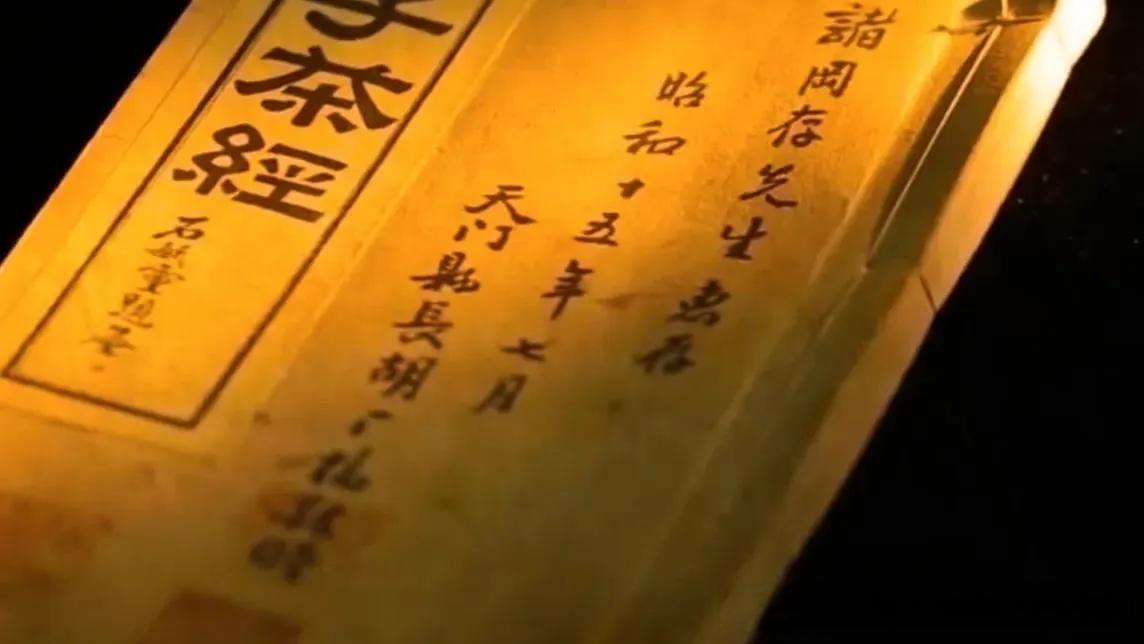 諸岡存先生惠存
昭和十五年七月
天门縣長胡敬贈
子茶經
石重題